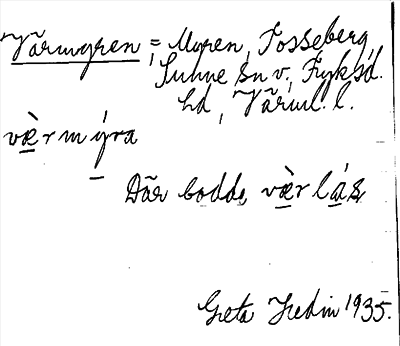 Värmgren, = Myren, Fosseberg,
Sunne Sn v. Fryksd.
hd, Värml. l.
væ̀rmýra
Där bodde, væ̀rlás,
Greta Hedin 1935.